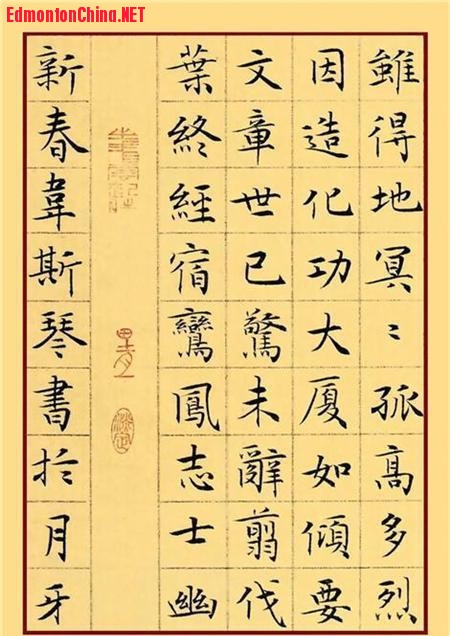 EdmontonChina.NET
雖得地冥〻孤高多烈
因造化功大厦如傾要
文章世已驚未辭翦伐
葉終經宿鸞鳳志士幽
新春韋斯琴書扵月牙